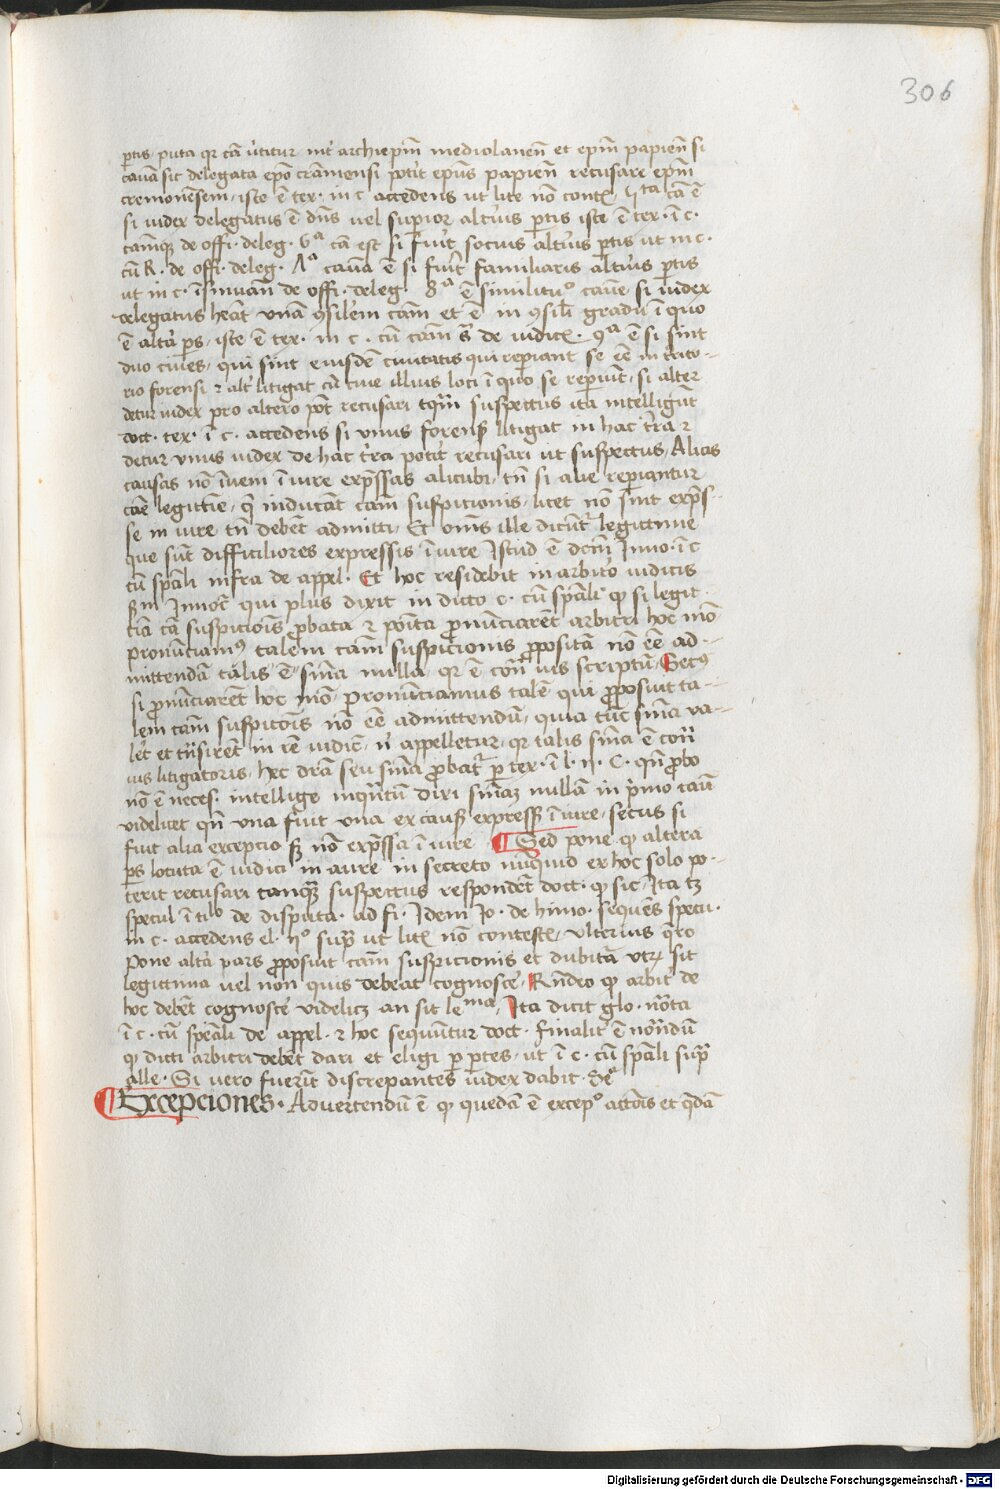 306
ptis puta qr cā ūtitur int' archiepm̄ mediolaneñ et epm̄ papieñ si
cauā sit delegata epō crāmensi potit epūs papieñ recusare epm̄
cremonēsem, iste ē tex. in c accedens ut lite nō contx̄ 5ta cā ē
si iudex delegatus ē dn̄s uel supior alti'us ptis iste ē tex. ī c.
tamqz de offi. deleg. 6a cā est si fuit socius alti'us ptis ut in c.
cū R. de offi. deleg. 7a cauā ē si fuit familiaris alti'us ptis
ut in c. īsinuañ de offi. deleg. 8a ē similituo caue si iudex
delegatus heāt unā ꝯsilem cām et ē in ꝯsili gradu ī quo
ē alta ps, iste ē tex. in c. cū cām s̄ de iudicx. 9a ē si sint
duo ciues, qui sint eiusdē ciuitatis qui repiant se eē in trito-
rio forensi ⁊ alt' litigat cū ciue illius loci ī quo se repiunt, si alter
detur iudex pro altero pōt recusari tqm̄ suspectus ita intelligūt
doct. tex. ī c. accedens si unus forens litigat in hac t'ra ⁊
detur unus iudex de hac t'ra potit recusari ut suspectus, Alias
causas nō inueni ī iure expssas alicubi, tn̄ si alie repiantur
cāe legittīe, q̄ inducāt cām suspicionis, licet nō sint exps-
se in iure tn̄ debēt admitti, Et om̄s ille dicūt' legittime
que sūt difficiliores expressis ī iure Istud ē dcm̄ Inno. ī c
cū spāli infra de appel. Et hoc residebit in arbit'o iudicis
sm̄ Innoc̄ qui plus dixit in dicto c. cū spāli qp si legit-
tīa cā suspicioīs pbata ⁊ poīta pronūciarēt arbitri hoc mō
pronūciam9 talem cām suspicionis propositā nō eē ad-
mittendā talis ē sn̄ia nulla qr ē con̄ ius scriptū, Sec9
si pronūciarēt hoc mō pronūciamus talē qui proposuit ta-
lem cām suspicōis nō eē admittendū, quia tūc sn̄ia ua-
let et trāsiret in rē iudic̄, n̄ appelletur, qr talis sn̄ia ē con̄
ius litigatoris, hec dr̄ā seu sn̄ia pbat' p tex. ī l. ij. C. qn̄ pbo
nō ē neces. intellige inqntū dixi sn̄iaz nullā in pimo cāu
videlicet qn̄ una fuit una ex caus express ī iure, secus si
fuit alia exceptio sz nō expssa ī iure ¶ Sed pone qp altera
ps locuta ē iudici in aure in secreto nūquid ex hoc solo po-
terit recusari tanqz suspectus respondet doct. qp sic, Ita tz
specul ī tito de disputa. ad fi. Idem Jo. de himo. sequēs specu.
in c. accedens el. ijo sup ut litx nō contestx, ulterius qro
Pone alta pars proposuit cām suspicionis et dubitā utrz sit
legittima uel non quis debeat cognosce', Rn̄deo qp arbit'i de
hoc debēt cognosce' videlicz an sit lema, Ita dicit glo. nōta
ī c. cū spēali de appel. ⁊ hoc sequūntur doct. Finalit' ē notandū
qp dicti arbitri debēt dari et eligi p ptes, ut ī c. cū spāli sup
alle. Si uero fuerīt discrepantes iudex dabit
¶ Excepciones. Aduertendū ē qp quedā ē excepo actōis et qdā
Digitalisierung gefördert durch die Deutsche Forschungsgemeinschaft - DFG